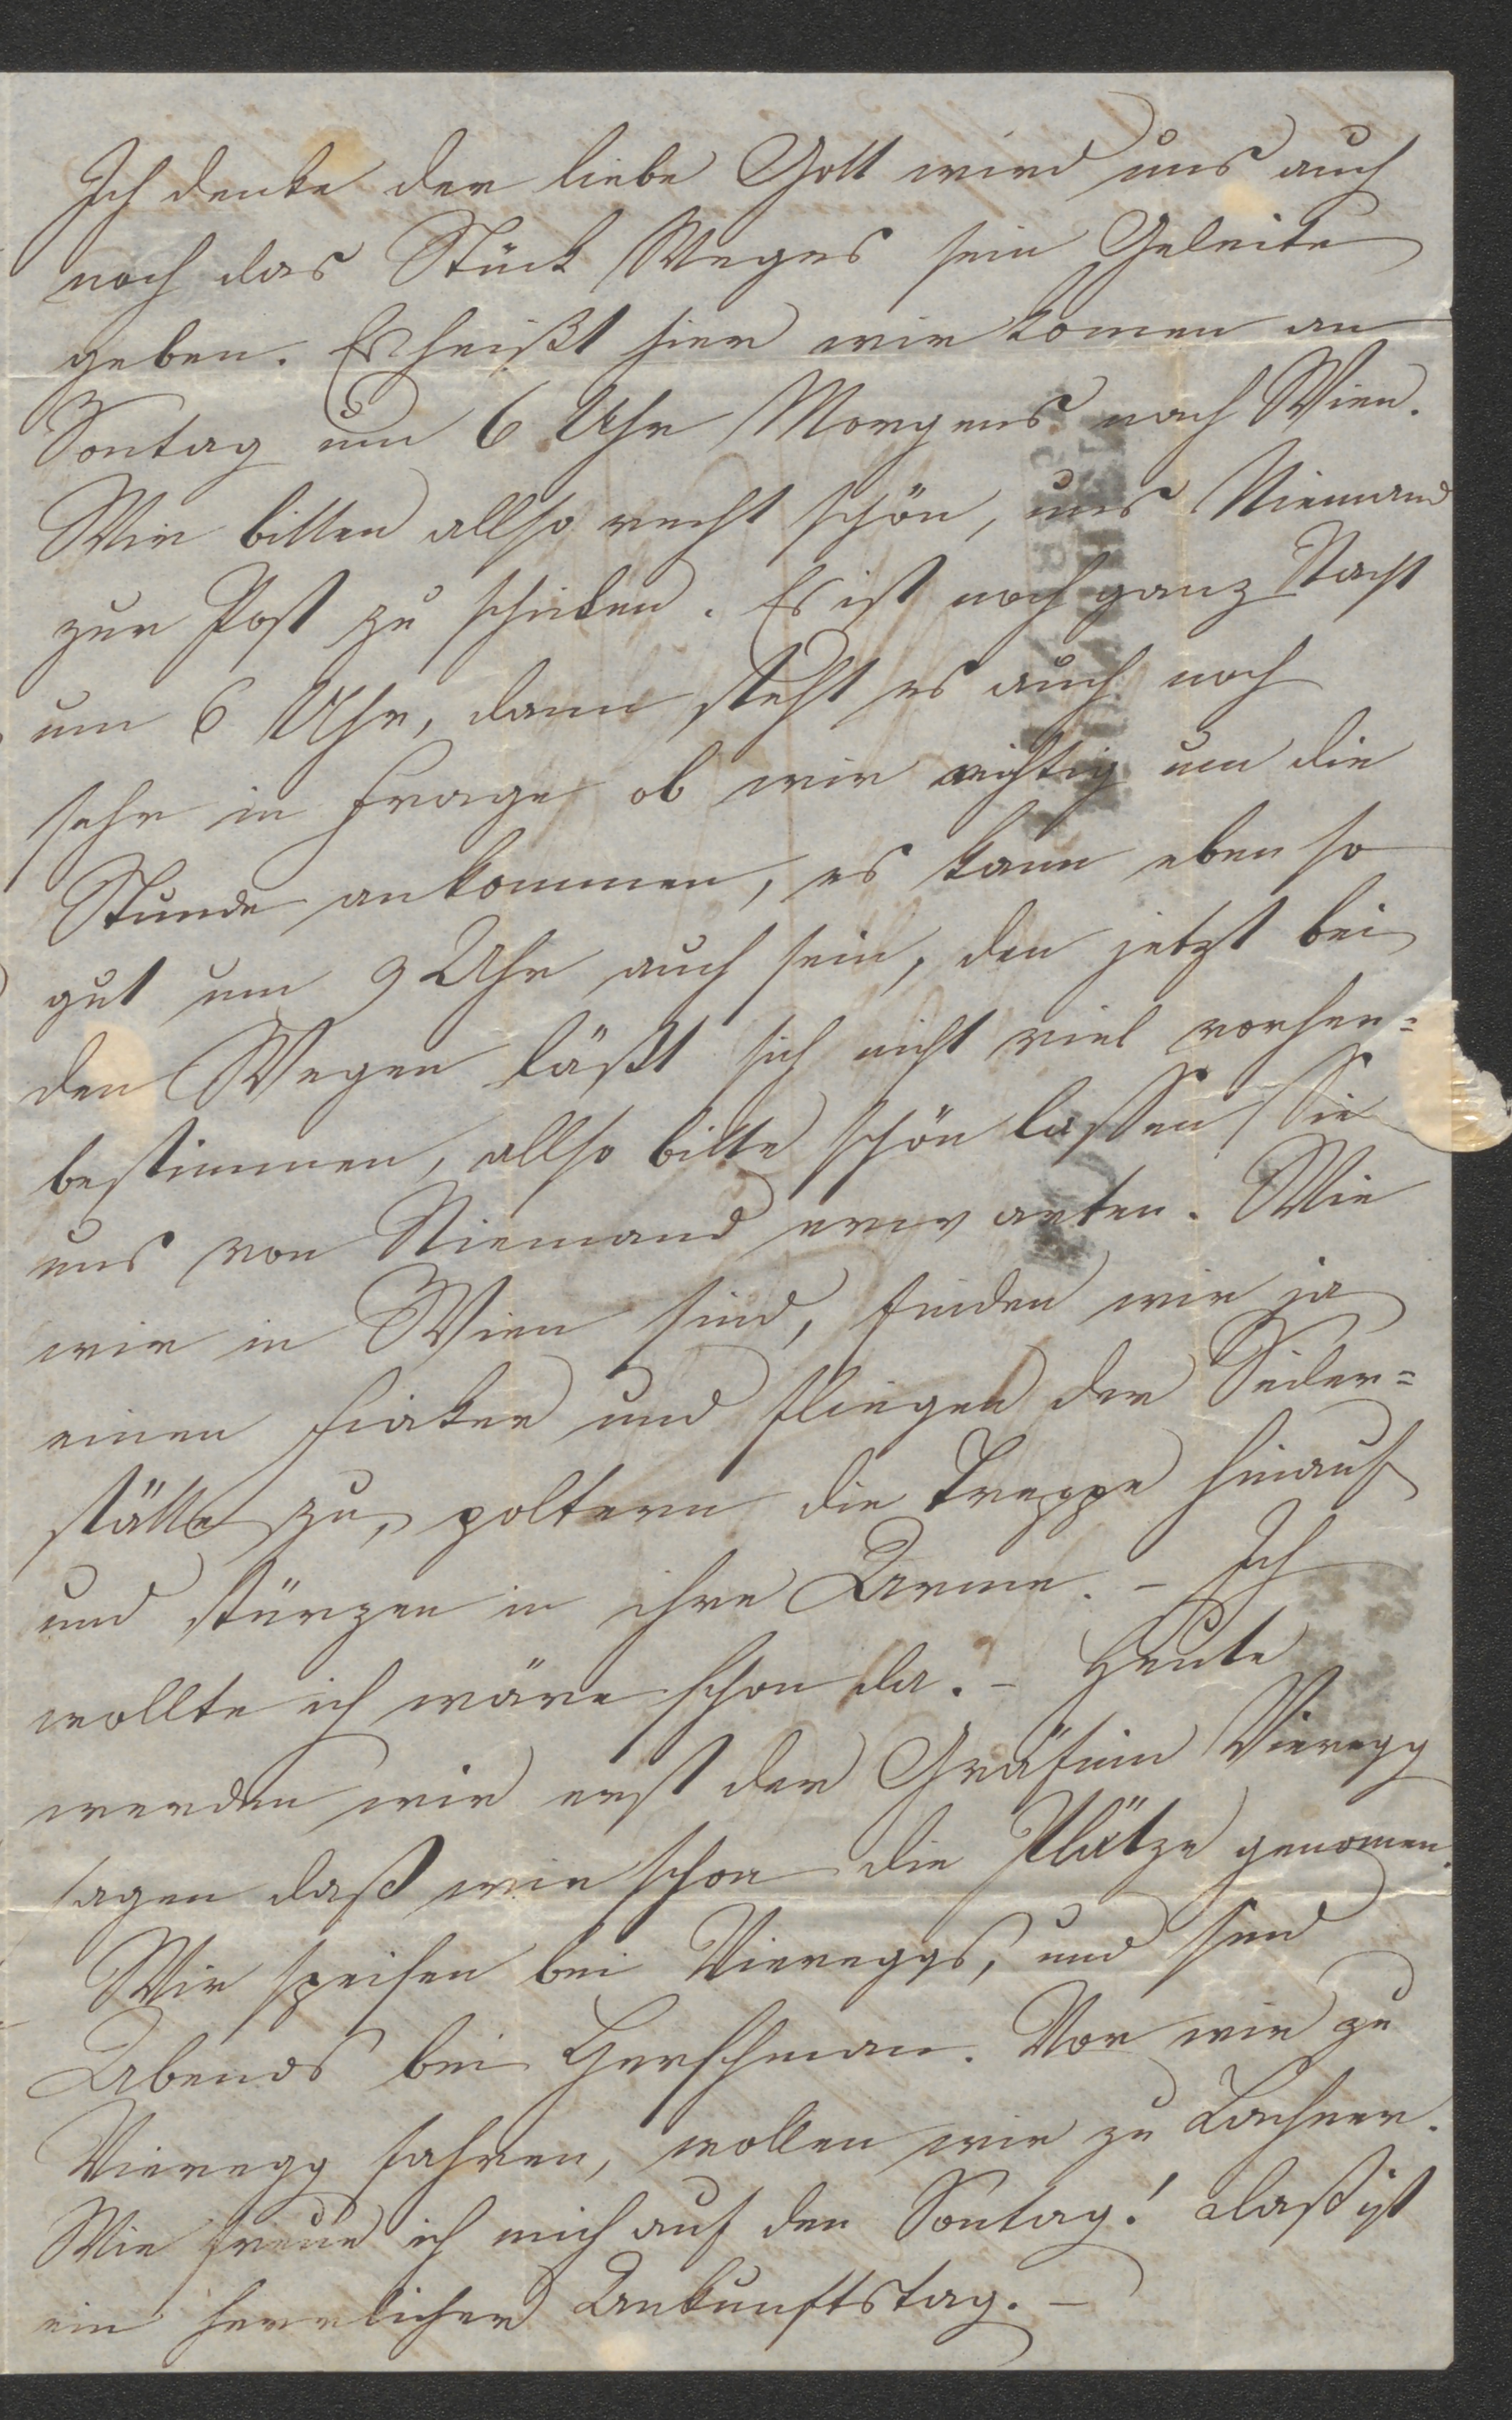 Ich denke der liebe Gott wird uns auch
noch das Stück Weges sein Geleite
geben. Es heißt hier wir komen am
Sontag um 6 Uhr Morgens nach Wien.
Wir bitten allso recht schön, uns Niemand
zur Post zu schicken. Es ist noch ganz Nacht
um 6 Uhr, dann steht es auch noch
sehr in Frage ob wir richtig um die
Stunde ankommen, es kann eben so
gut um 9 Uhr auch sein, den jetzt bei
den Wegen läßt sich nicht viel vorher=
bestimmen, allso bitte schön lassen Sie
uns von Niemand erwarten. Wie
wir in Wien sind, finden wir ja
einen Fiaker und fliegen der Seiler=
stätte zu, poltern die Treppe hinauf
und stürzen in ihre Arme. – Ich
wollte ich wäre schon da. – Heute
werden wir erst der Gräfinn Vieregg
sagen daß wir schon die Plätze genomen.
Wir speisen bei Viereggs, und sind
Abends bei Herschman. Vor wir zu
Vieregg fahren, wollen wir zu Lachner.
Wie freue ich mich auf den Sontag! daß ist
ein herrlicher Ankunftstag. –